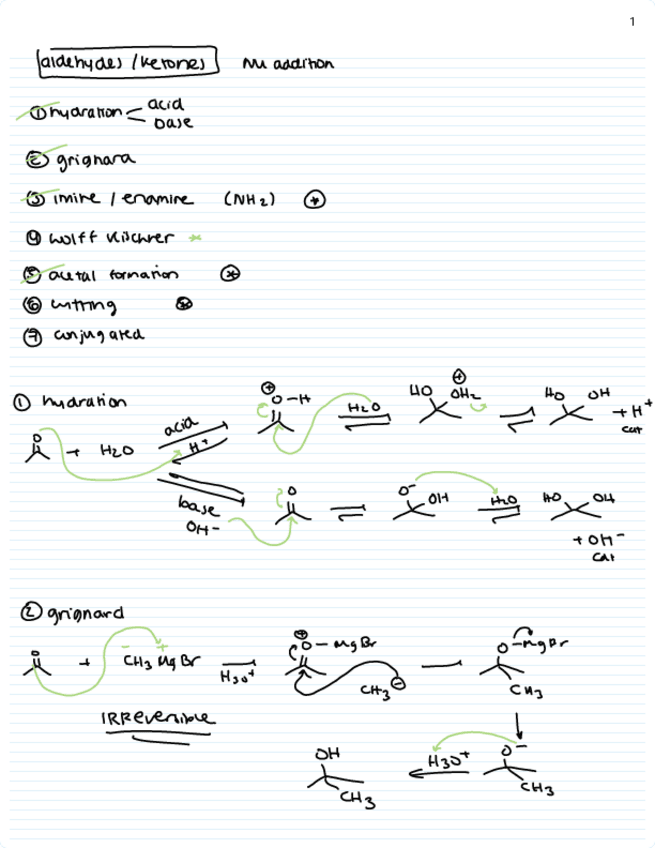 1
aldehydes / ketones Nu addition
① hydration acid
base
② grignard
③ imine / enamine (NH2) *
④ wolff kischner *
⑤ acetal formation *
⑥ witting *
⑦ conjugated
① hydration
O + H2O acid H+ ⊕ O-H H2O HO OH2 ⊕ HO OH + H+ cat
base OH- O O- OH H2O HO OH + OH- cat
② grignard
O + CH3 MgBr - + H3O+ ⊕ O-MgBr CH3 ⊖ O-MgBr CH3
IRREversible
OH CH3 H3O+ O- CH3